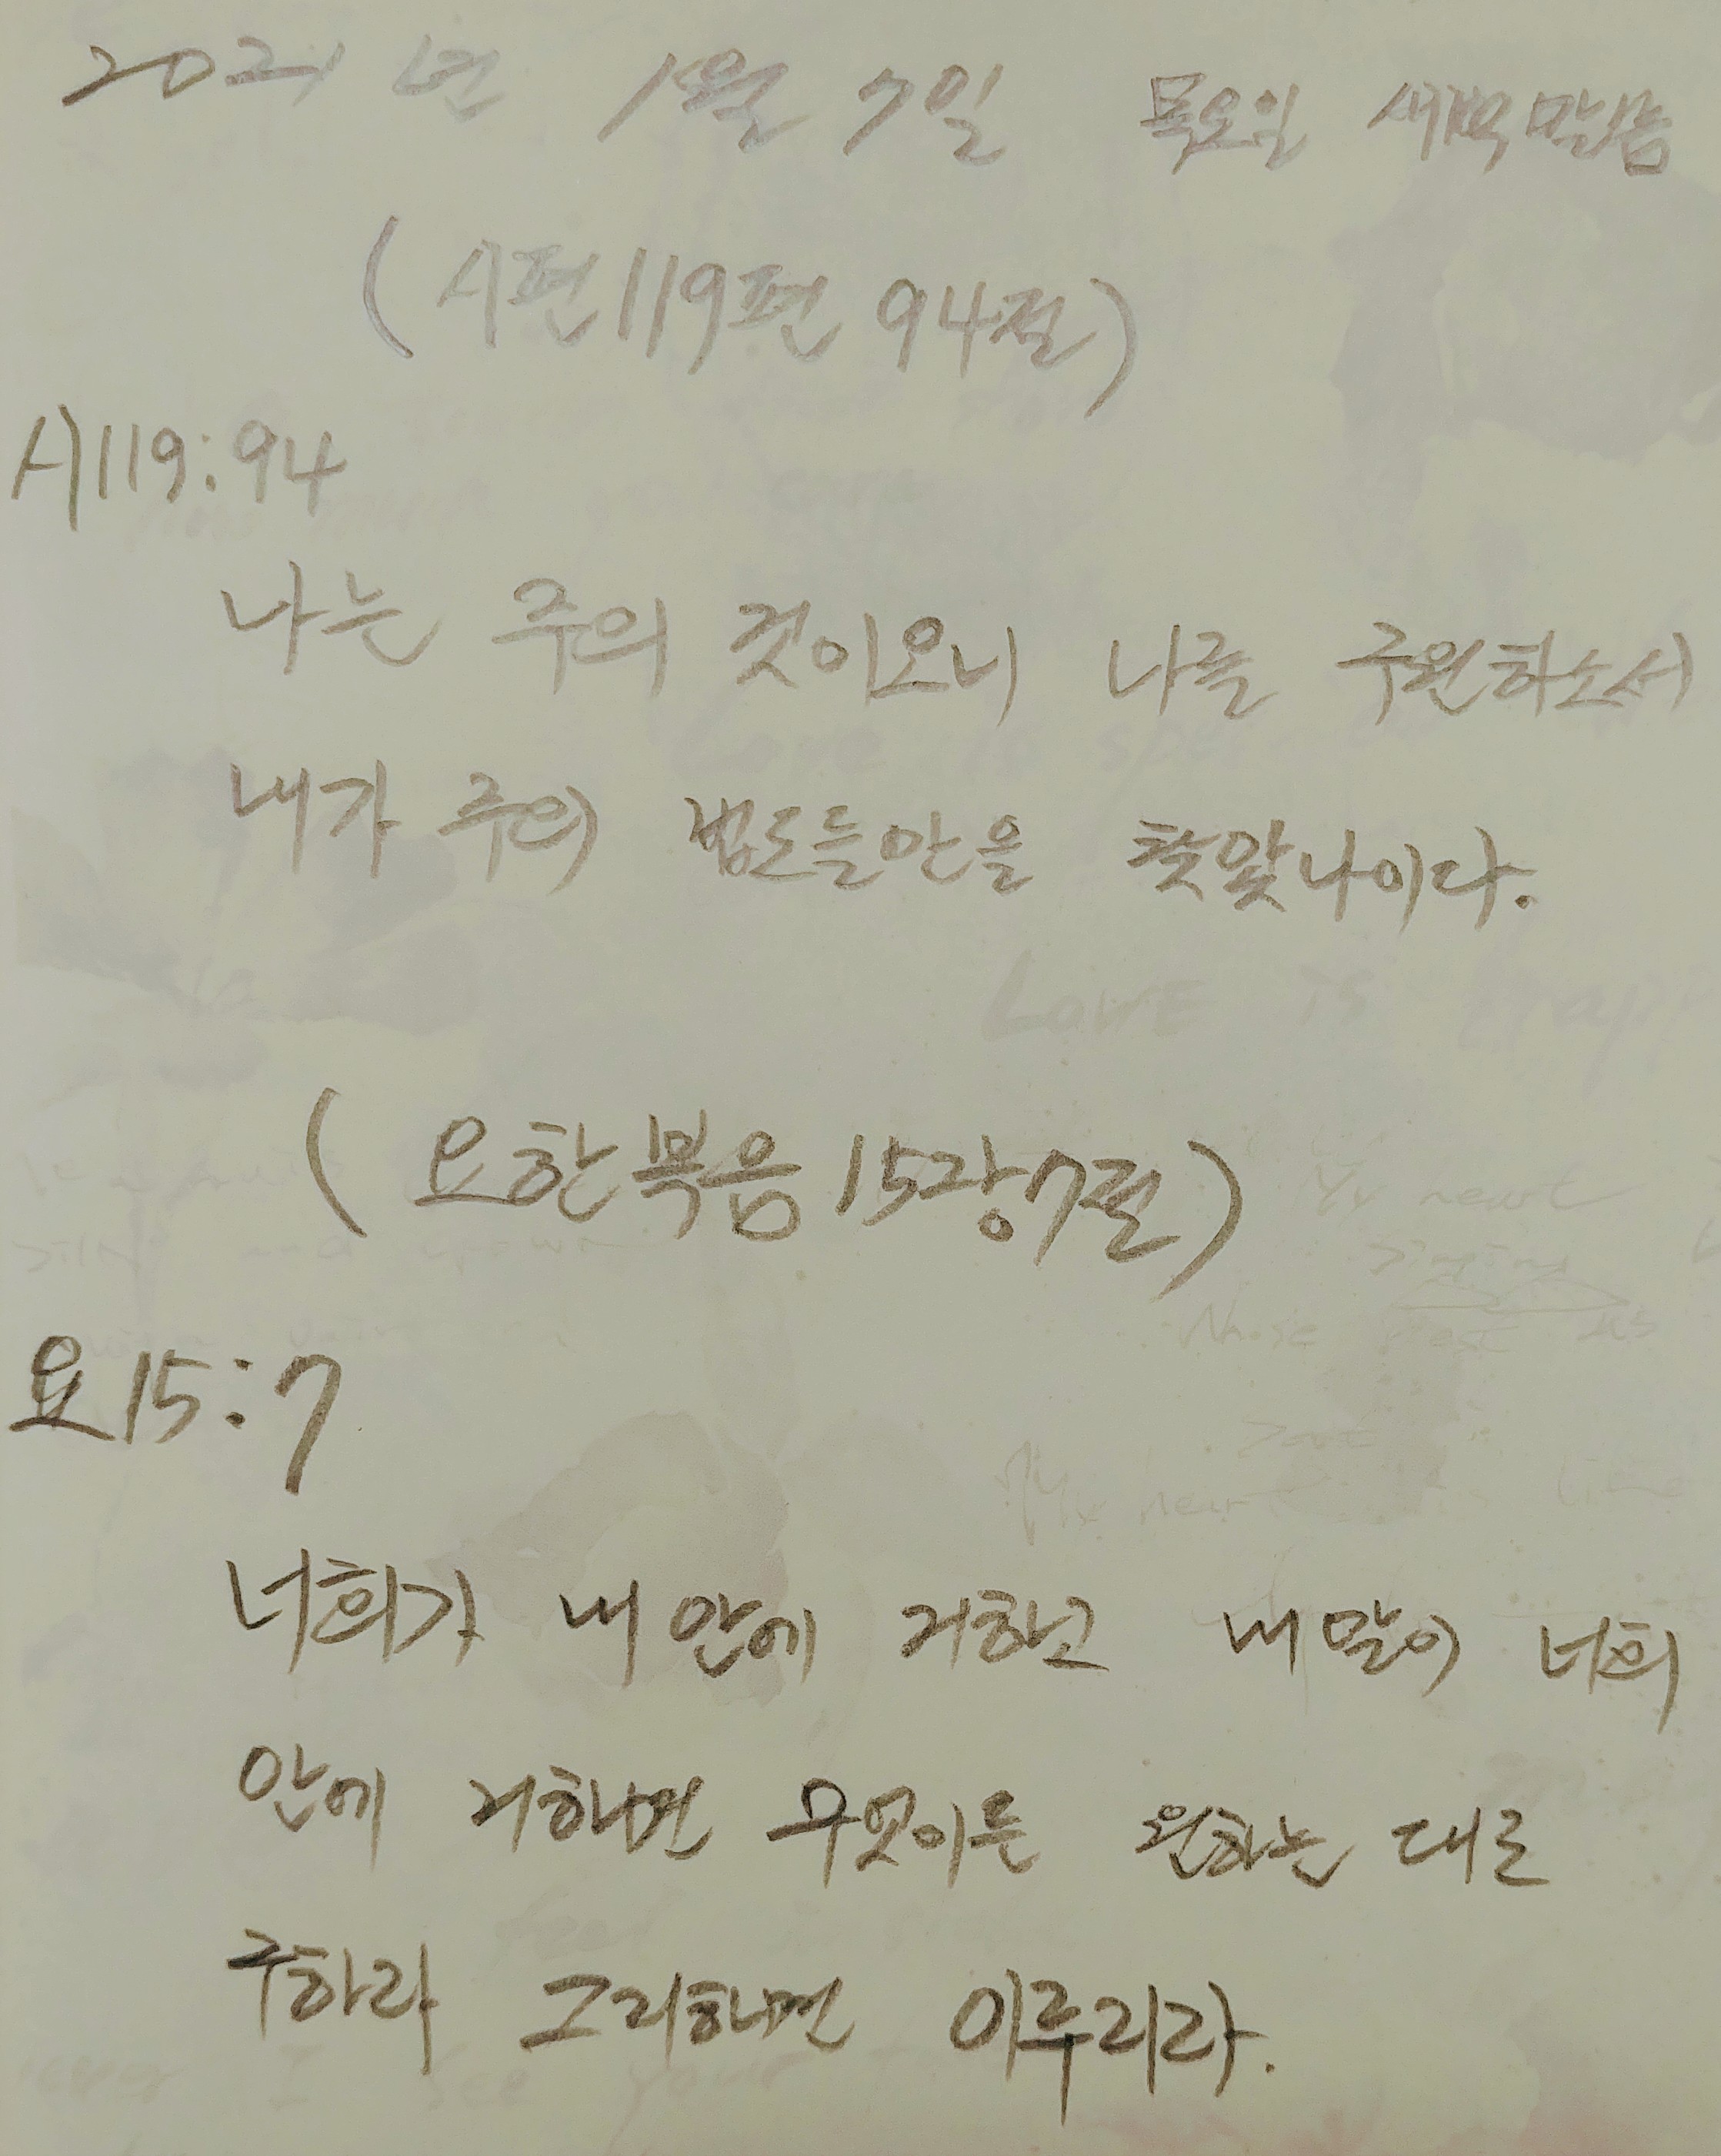 2021년 1월 7일 목요일 새벽말씀
(시편119편 94절)
시119:94
나는 주의 것이오니 나를 구원하소서
내가 주의 법도들만을 찾았나이다.
(요한복음15장7절)
요15:7
너희가 내 안에 거하고 내 말이 너희
안에 거하면 무엇이든 원하는 대로
구하라 그리하면 이루리라.